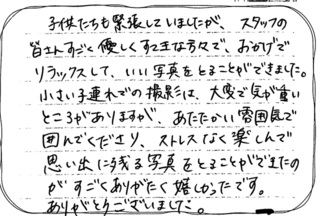 子供たちも緊張していましたが、スタッフの
皆さんすごく優しくすてきな方々で、おかげで
リラックスして、いい写真をとることができました。
小さい子連れでの撮影は、大変で気が重い
ところがありますが、あたたかい雰囲気で
囲んでくださり、ストレスなく楽しんで
思い出に残る写真をとることができたの
がすごくありがたく嬉しかったです。
ありがとうございました。